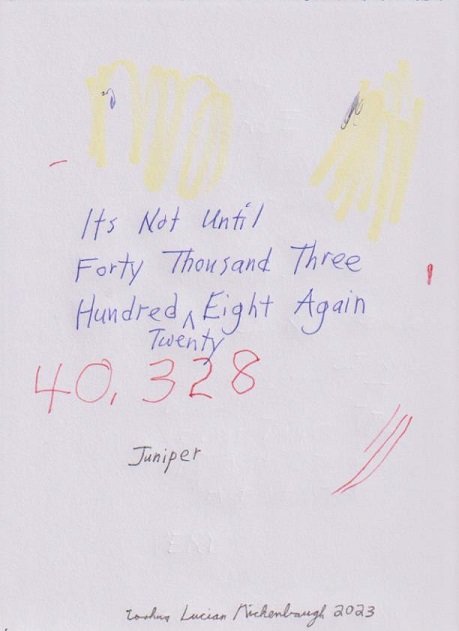 Its Not Until
Forty Thousand Three
Hundred ^ Eight Again
Twenty
40,328
Juniper
Lucian 2023